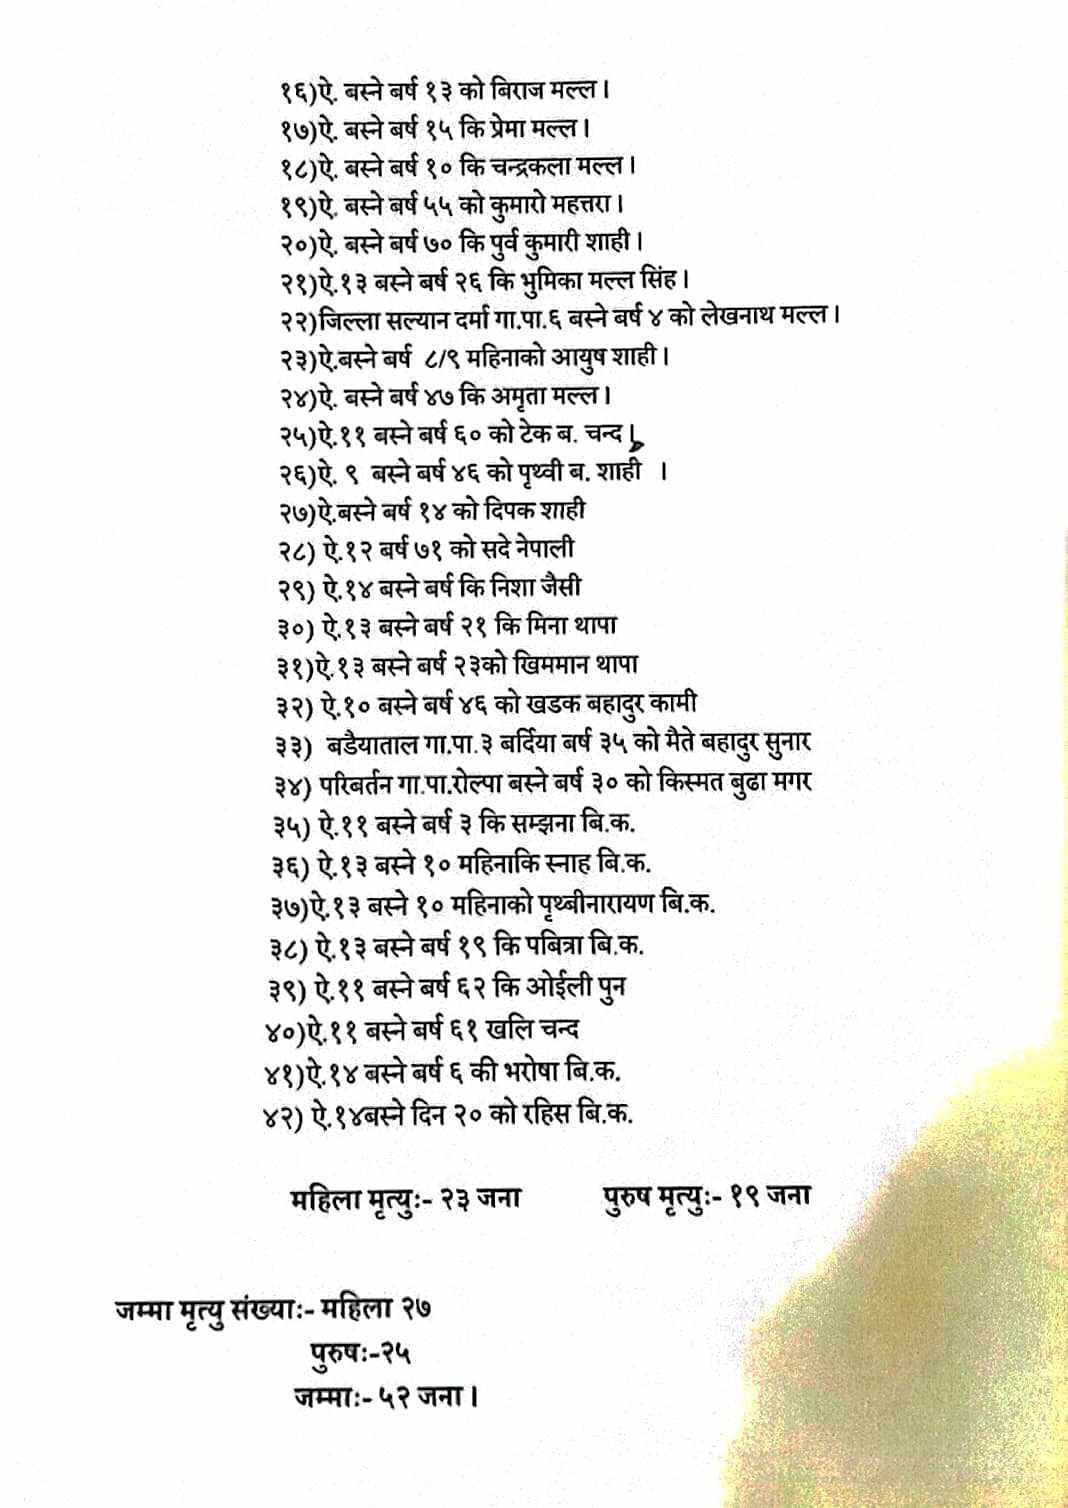 १६)ऐ. बस्ने बर्ष १३ को बिराज मल्ल।
१७)ऐ. बस्ने बर्ष १५ कि प्रेमा मल्ल।
१८)ऐ. बस्ने बर्ष १० कि चन्द्रकला मल्ल।
१९)ऐ. बस्ने बर्ष ५५ को कुमारो महत्तरा।
२०)ऐ. बस्ने बर्ष ७० कि पुर्व कुमारी शाही।
२१)ऐ.१३ बस्ने बर्ष २६ कि भुमिका मल्ल सिंह।
२२)जिल्ला सल्यान दर्मा गा.पा.६ बस्ने बर्ष ४ को लेखनाथ मल्ल।
२३)ऐ.बस्ने बर्ष ८/९ महिनाको आयुष शाही।
२४)ऐ. बस्ने बर्ष ४७ कि अमृता मल्ल।
२५)ऐ.११ बस्ने बर्ष ६० को टेक ब. चन्द।
२६)ऐ. ९ बस्ने बर्ष ४६ को पृथ्वी ब. शाही ।
२७)ऐ.बस्ने बर्ष १४ को दिपक शाही
२८) ऐ.१२ बर्ष ७१ को सदे नेपाली
२९) ऐ.१४ बस्ने बर्ष कि निशा जैसी
३०) ऐ.१३ बस्ने बर्ष २१ कि मिना थापा
३१)ऐ.१३ बस्ने बर्ष २३को खिममान थापा
३२) ऐ.१० बस्ने बर्ष ४६ को खडक बहादुर कामी
३३) बडैयाताल गा.पा.३ बर्दिया बर्ष ३५ को मैते बहादुर सुनार
३४) परिबर्तन गा.पा.रोल्पा बस्ने बर्ष ३० को किस्मत बुढा मगर
३५) ऐ.११ बस्ने बर्ष ३ कि सम्झना बि.क.
३६) ऐ.१३ बस्ने १० महिनाकि स्नाह बि.क.
३७)ऐ.१३ बस्ने १० महिनाको पृथ्बीनारायण बि.क.
३८) ऐ.१३ बस्ने बर्ष १९ कि पबित्रा बि.क.
३९) ऐ.११ बस्ने बर्ष ६२ कि ओईली पुन
४०)ऐ.११ बस्ने बर्ष ६१ खलि चन्द
४१)ऐ.१४ बस्ने बर्ष ६ की भरोषा बि.क.
४२) ऐ.१४बस्ने दिन २० को रहिस बि.क.
महिला मृत्युः- २३ जना पुरुष मृत्युः- १९ जना
जम्मा मृत्यु संख्याः- महिला २७
पुरुषः-२५
जम्माः- ५२ जना।